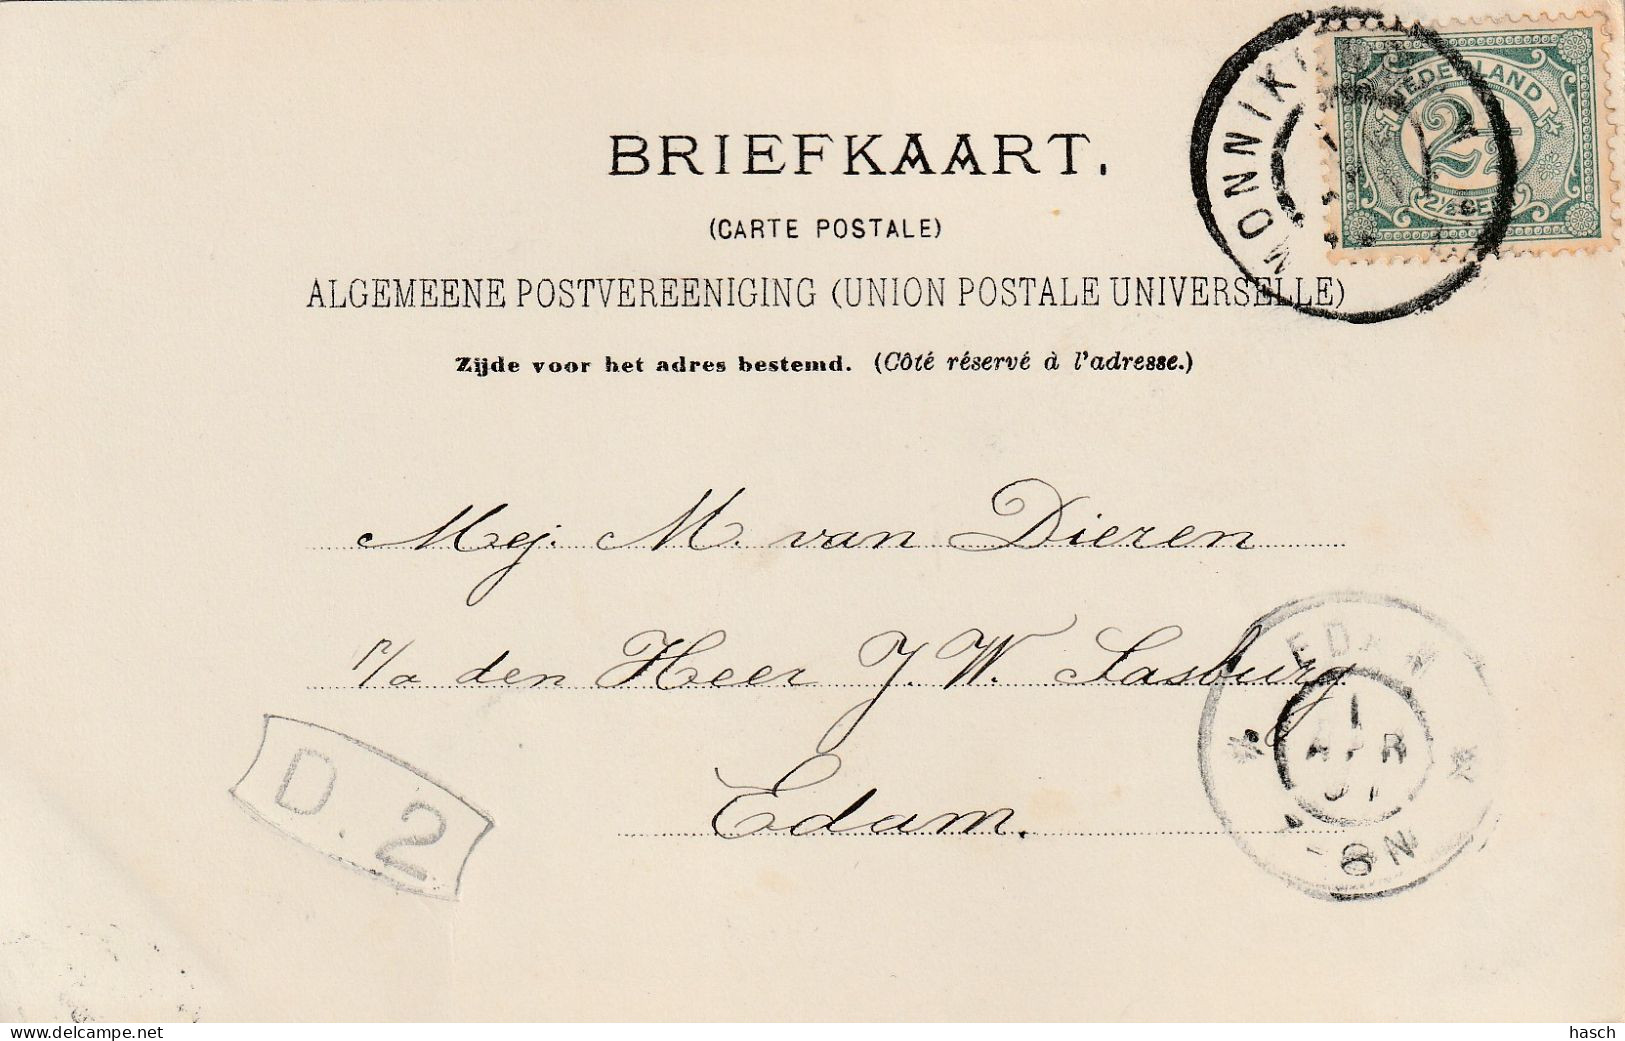 BRIEFKAART.
(CARTE POSTALE)
ALGEMEENE POSTVEREENIGING (UNION POSTALE UNIVERSELLE)
Zijde voor het adres bestemd. (Côté réservé à l'adresse.)
NEDERLAND
2½
2½ CENT
MONNIK
Mej. M. van Dieren
p/a den Heer J. W. Sasburg
Edam.
EDAM
1
APR
01
8N
D. 2
www.delcampe.net
hasch